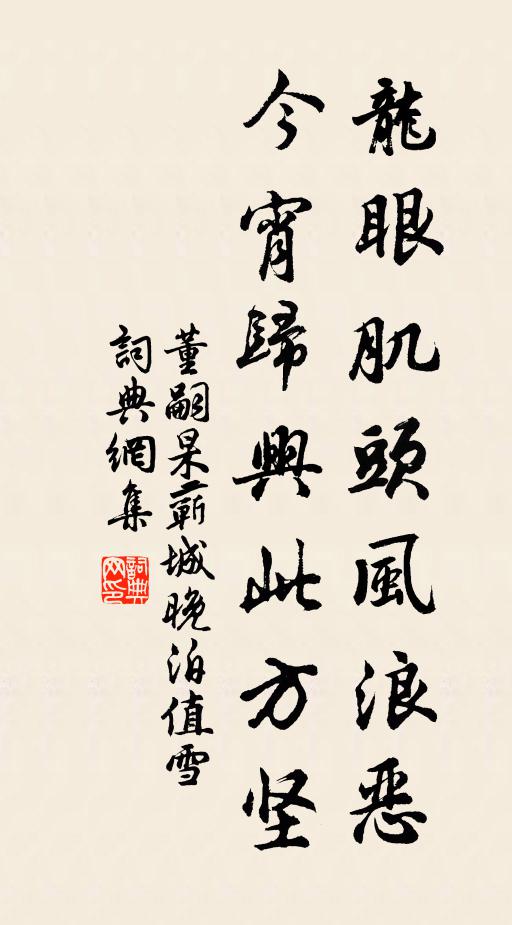 龍眼肌頭風浪惡
今宵歸興此方坚
董嗣杲蘄城晚泊值雪
詞典網集
詞典網印